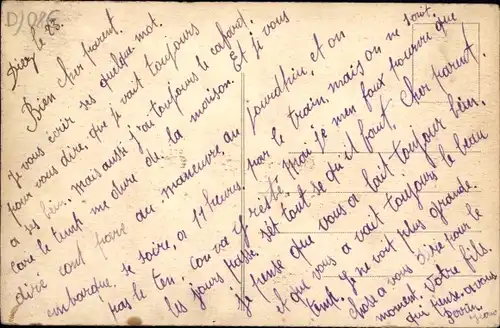 D) 086
le 28.
Bien cher parent.
Je vous écrir ses quelque mot.
pour vous dire, que je vait toujours
a ses bien. Mais aussi j'ai toujours le cafard.
care le temps me dure de la maison. Et je vous
diré cont par au maneuvre, au jourdhui, et on
embarque, se soire, a 11 heures, par le train, mais on ne soit
pas le ten. con va y resté. Mai je men foux pourvu que
les jours passe. sét tout se qu'il faut. Cher parent.
je pense que vous a lait toujour bien.
et que vous a vait toujours le beau
tent. Je ne voit plus grande
chose a vous dire pour le
moment. Votre fils.
qui pense a vous